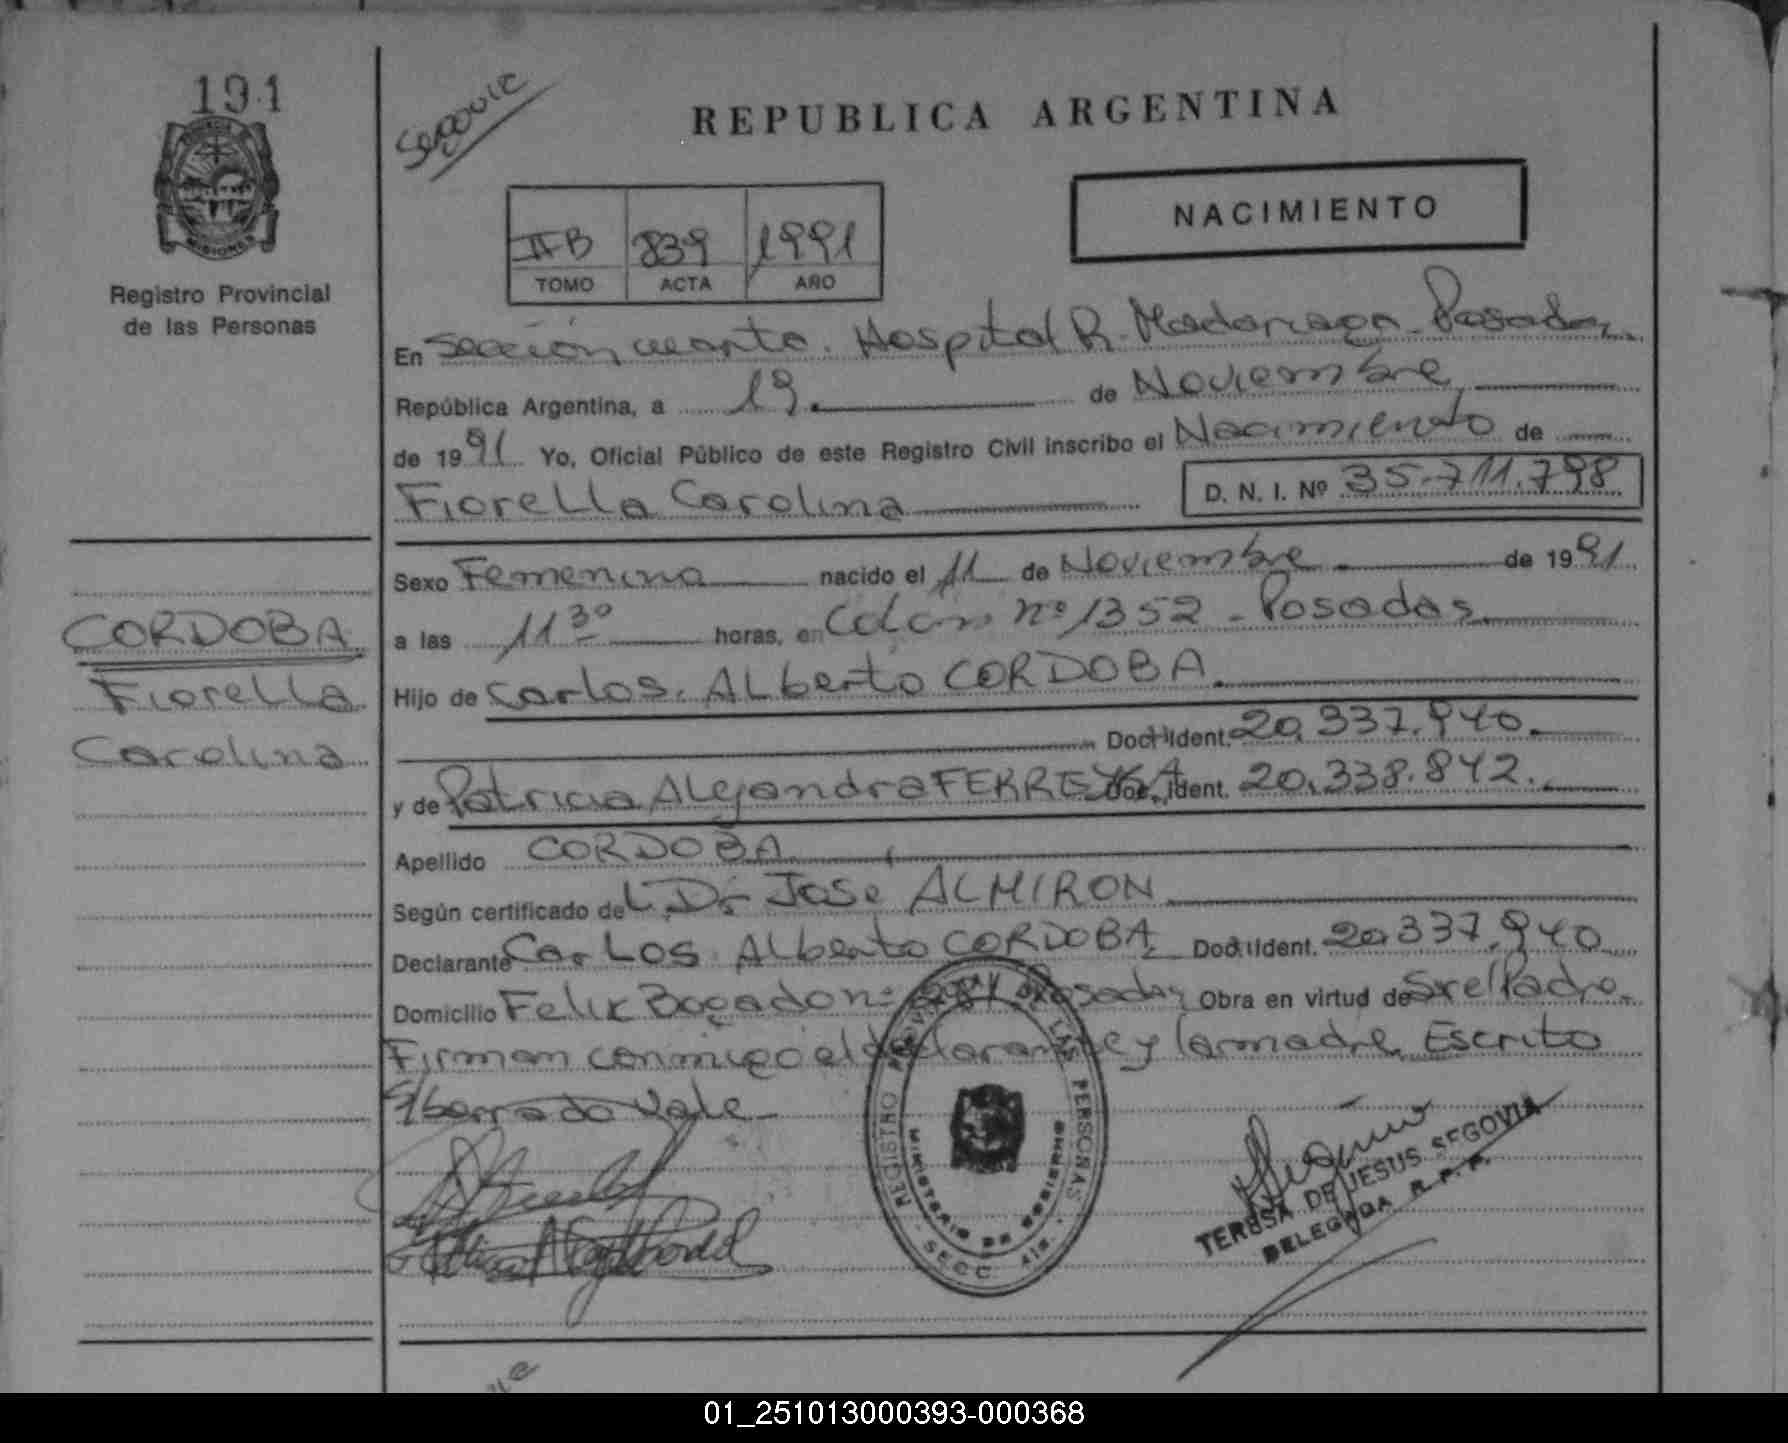 191
MISIONES
Registro Provincial
de las Personas
Segovia
REPUBLICA ARGENTINA
NACIMIENTO
II B 839 1991
TOMO ACTA AÑO
En Sección cuarta. Hospital R. Madariaga - Posadas
República Argentina, a 19. de Noviembre
de 1991 Yo, Oficial Público de este Registro Civil inscribo el Nacimiento de
Fiorella Carolina D. N. I. Nº 35.711.798
Sexo Femenino nacido el 11 de Noviembre de 1991
a las 11 30 horas, en Colón nº 1352 - Posadas
Hijo de Carlos Alberto CORDOBA
Doc. Ident. 20.337.940.
y de Patricia Alejandra FERREYRA Doc. Ident. 20.338.842.
Apellido CORDOBA
Según certificado del Dr José ALMIRON
Declarante Carlos Alberto CORDOBA Doc. Ident. 20.337.940
Domicilio Felix Bogado nº Posadas Obra en virtud de Ser el Padre.
Firman conmigo el declarante y la madre. Escrito
S/borrado Vale
CORDOBA
Fiorella
Carolina
REGISTRO PROVINCIAL DE LAS PERSONAS
MINISTERIO DE GOBIERNO
SECC. 4ta.
TERESA DE JESUS SEGOVIA
DELEGADA R. P. P.
01_251013000393-000368